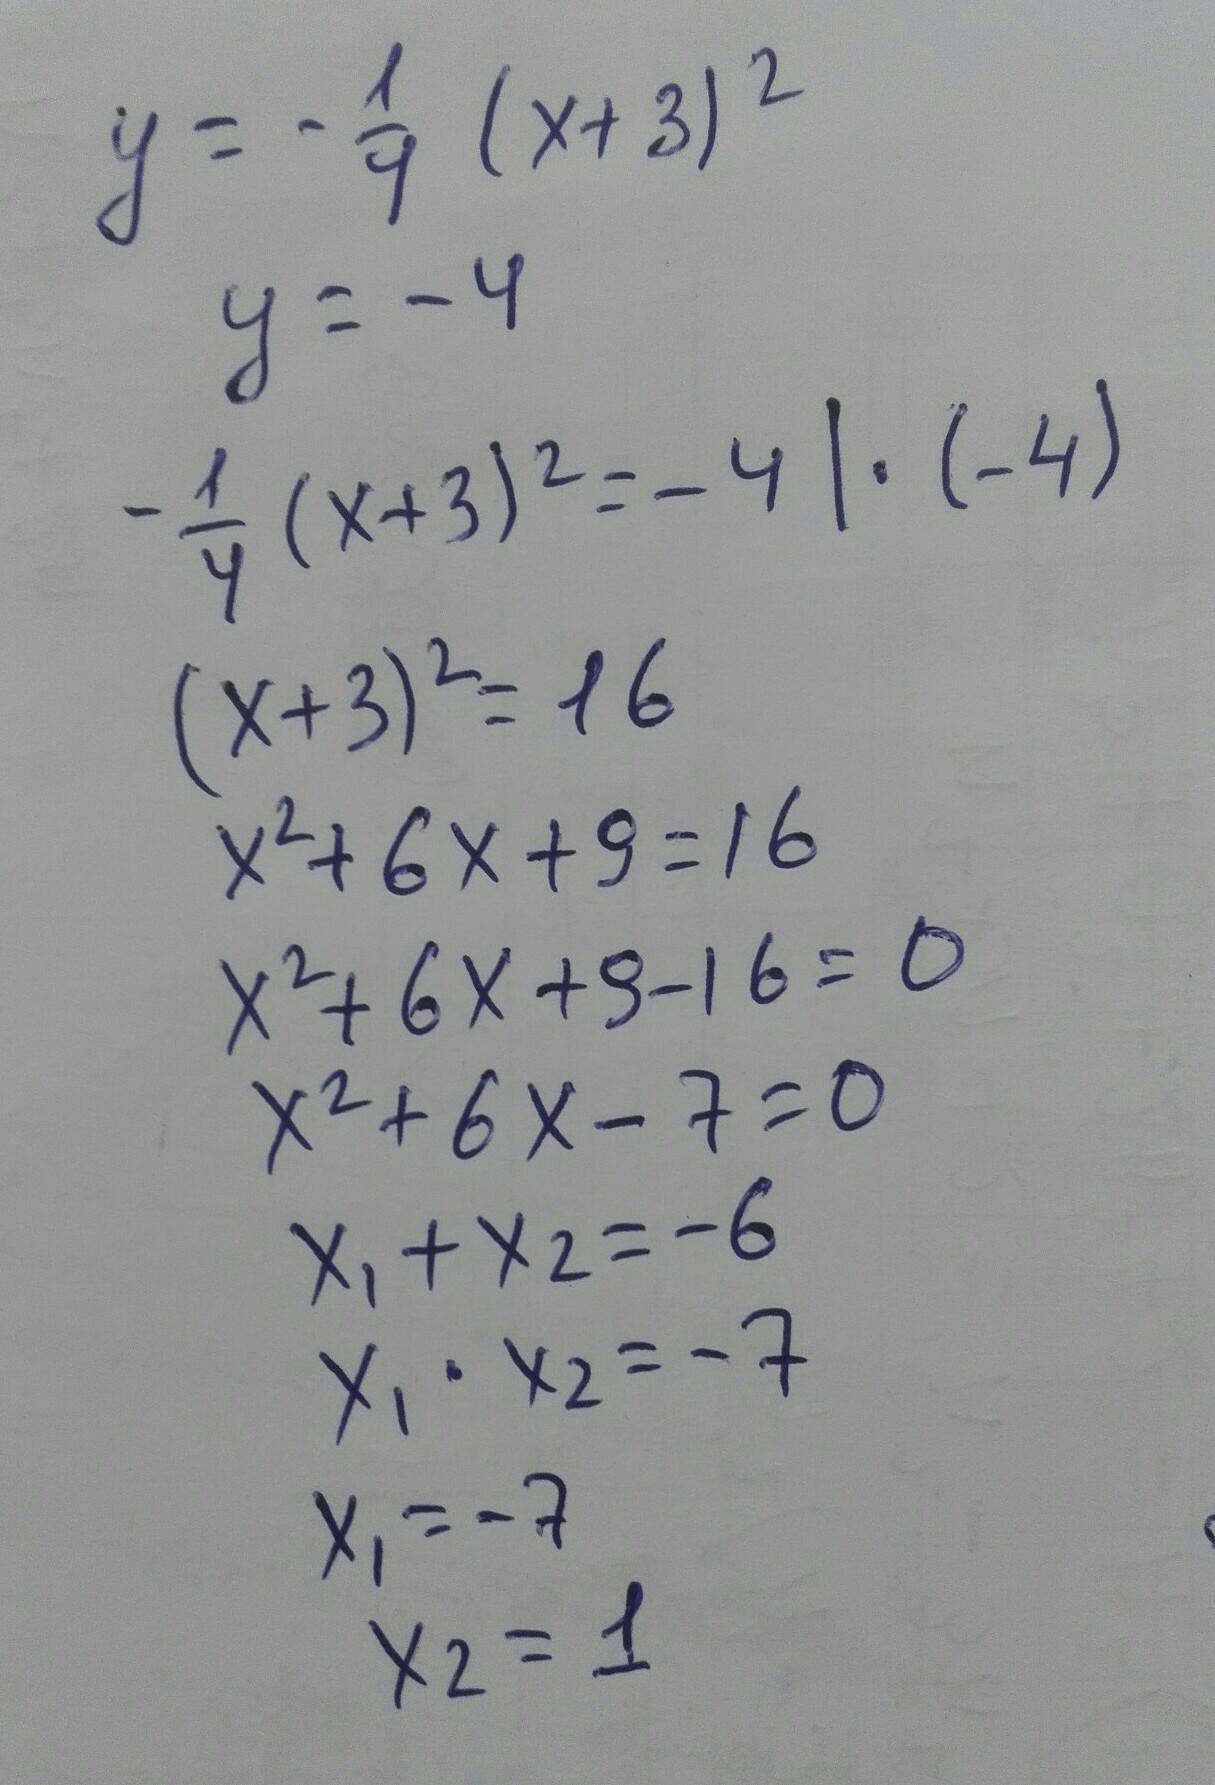 y = - 1/4 (x+3)²
y = -4
- 1/4 (x+3)² = -4 | · (-4)
(x+3)² = 16
x² + 6x + 9 = 16
x² + 6x + 9 - 16 = 0
x² + 6x - 7 = 0
x₁ + x₂ = -6
x₁ · x₂ = -7
x₁ = -7
x₂ = 1